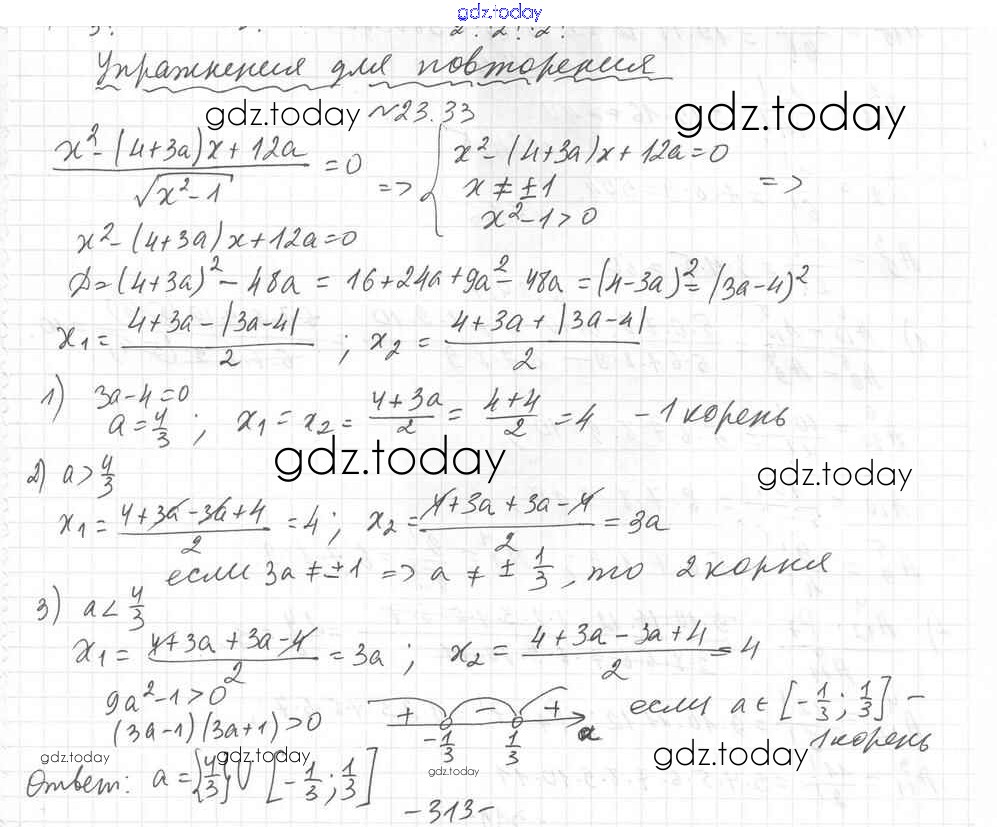 gdz.today
Упражнения для повторения
gdz.today №23.33 gdz.today
(x² - (4+3a)x + 12a)/√(x²-1) = 0 => { x² - (4+3a)x + 12a = 0
x ≠ ±1 =>
x² - 1 > 0
x² - (4+3a)x + 12a = 0
D = (4+3a)² - 48a = 16 + 24a + 9a² - 48a = (4-3a)² = (3a-4)²
x₁ = (4+3a-|3a-4|)/2 ; x₂ = (4+3a+|3a-4|)/2
1) 3a-4=0
a = 4/3 ; x₁ = x₂ = (4+3a)/2 = (4+4)/2 = 4 - 1 корень
gdz.today gdz.today
2) a > 4/3
x₁ = (4+3a-3a+4)/2 = 4 ; x₂ = (4+3a+3a-4)/2 = 3a
если 3a ≠ ±1 => a ≠ ± 1/3, то 2 корня
3) a < 4/3
x₁ = (4+3a+3a-4)/2 = 3a ; x₂ = (4+3a-3a+4)/2 = 4
9a² - 1 > 0
(3a-1)(3a+1) > 0
+ - + a
-1/3 1/3
если a ∈ [-1/3; 1/3] -
1 корень
gdz.today gdz.today gdz.today
Ответ: a = {4/3} ∪ [-1/3; 1/3]
-313-